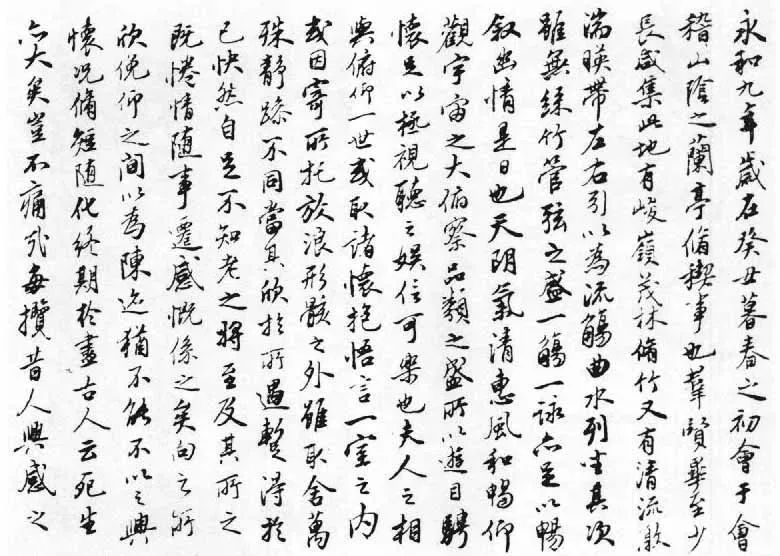 永和九年歲在癸丑暮春之初會于會
稽山陰之蘭亭脩禊事也羣賢畢至少
長咸集此地有峻嶺茂林脩竹又有清流激
湍暎帶左右引以為流觴曲水列坐其次
雖無絲竹管弦之盛一觴一詠亦足以暢
敘幽情是日也天朗氣清惠風和暢仰
觀宇宙之大俯察品類之盛所以遊目騁
懷足以極視聽之娛信可樂也夫人之相
與俯仰一世或取諸懷抱悟言一室之内
或因寄所托放浪形骸之外雖取舍萬
殊靜躁不同當其欣於所遇暫得於
己快然自足不知老之將至及其所之
既惓情隨事遷感慨係之矣向之所
欣俛仰之間以為陳迹猶不能不以之興
懷況脩短隨化終期於盡古人云死生
亦大矣豈不痛哉每攬昔人興感之